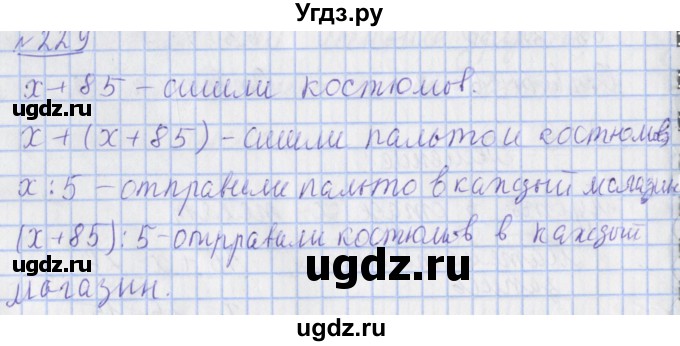 Угдз.ру
№229
х + 85 – сшили костюмов.
ugdz.ru ugdz.ru
х + (х + 85) – сшили пальто и костюмов
х : 5 – отправили пальто в каждый магазин
ugdz.ru ugdz.ru
(х + 85) : 5 – отправили костюмов в каждый
магазин.
ugdz.ru ugdz.ru